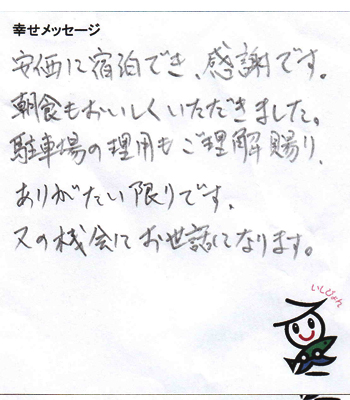 幸せメッセージ
安価に宿泊でき、感謝です。
朝食もおいしくいただきました。
駐車場の理用もご理解賜り、
ありがたい限りです。
又の機会にお世話になります。
いしぴょん